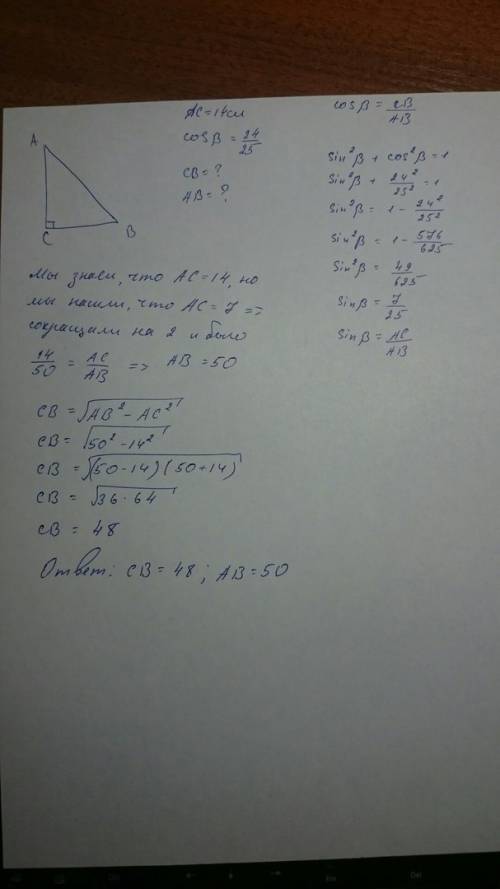 A
C
B
AC = 14см
cosβ = 24/25
CB = ?
AB = ?
cosβ = CB/AB
sin²β + cos²β = 1
sin²β + 24²/25² = 1
sin²β = 1 - 24²/25²
sin²β = 1 - 576/625
sin²β = 49/625
sinβ = 7/25
sinβ = AC/AB
Мы знаем, что AC = 14, но
мы нашли, что AC = 7 =>
сокращали на 2 и было
14/50 = AC/AB => AB = 50
CB = √AB² - AC²
CB = √50² - 14²
CB = √(50-14)(50+14)
CB = √36·64
CB = 48
Ответ: CB = 48; AB = 50